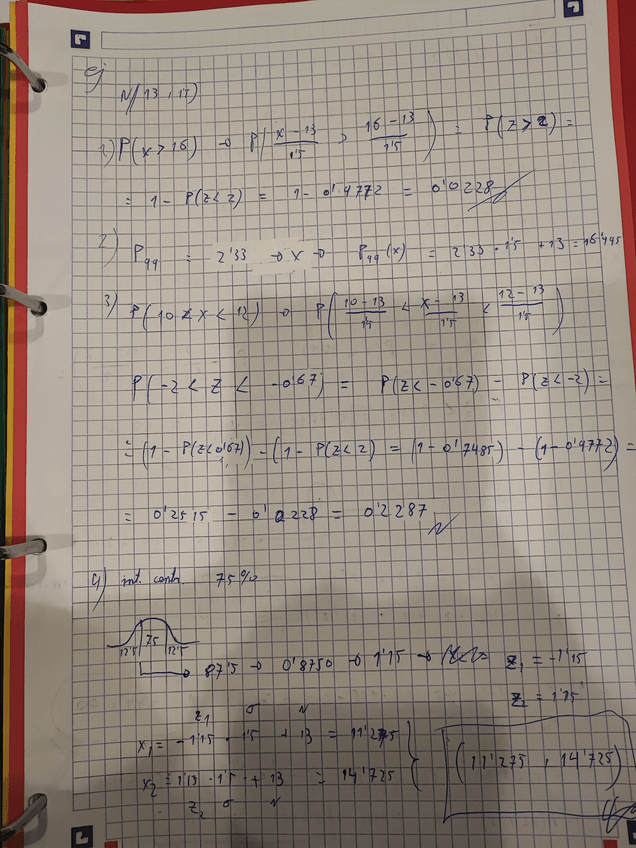 ej
N(13, 1'5)
1) P(x > 16) → P( x-13/1'5 > 16-13/1'5 ) = P(z > 2) =
= 1 - P(z < 2) = 1 - 0'4772 = 0'0228
2) P99 = 2'33 → x → P99 (x) = 2'33 · 1'5 + 13 = 16'495
3) P(10 < x < 12) → P( 10-13/1'5 < x-13/1'5 < 12-13/1'5 )
P(-2 < z < -0'67) = P(z < -0'67) - P(z < -2) =
= (1 - P(z < 0'67)) - (1 - P(z < 2) = (1 - 0'7485) - (1 - 0'4772) =
= 0'2515 - 0'0228 = 0'2287
4) int. centr. 75%
12'5 75 12'5
87'5 → 0'8750 → 1'15 → z1 = -1'15
z2 = 1'15
z1 σ N
x1 = -1'15 · 1'5 + 13 = 11'275
x2 = 1'15 · 1'5 + 13 = 14'725
(11'275, 14'725)
z2 σ N